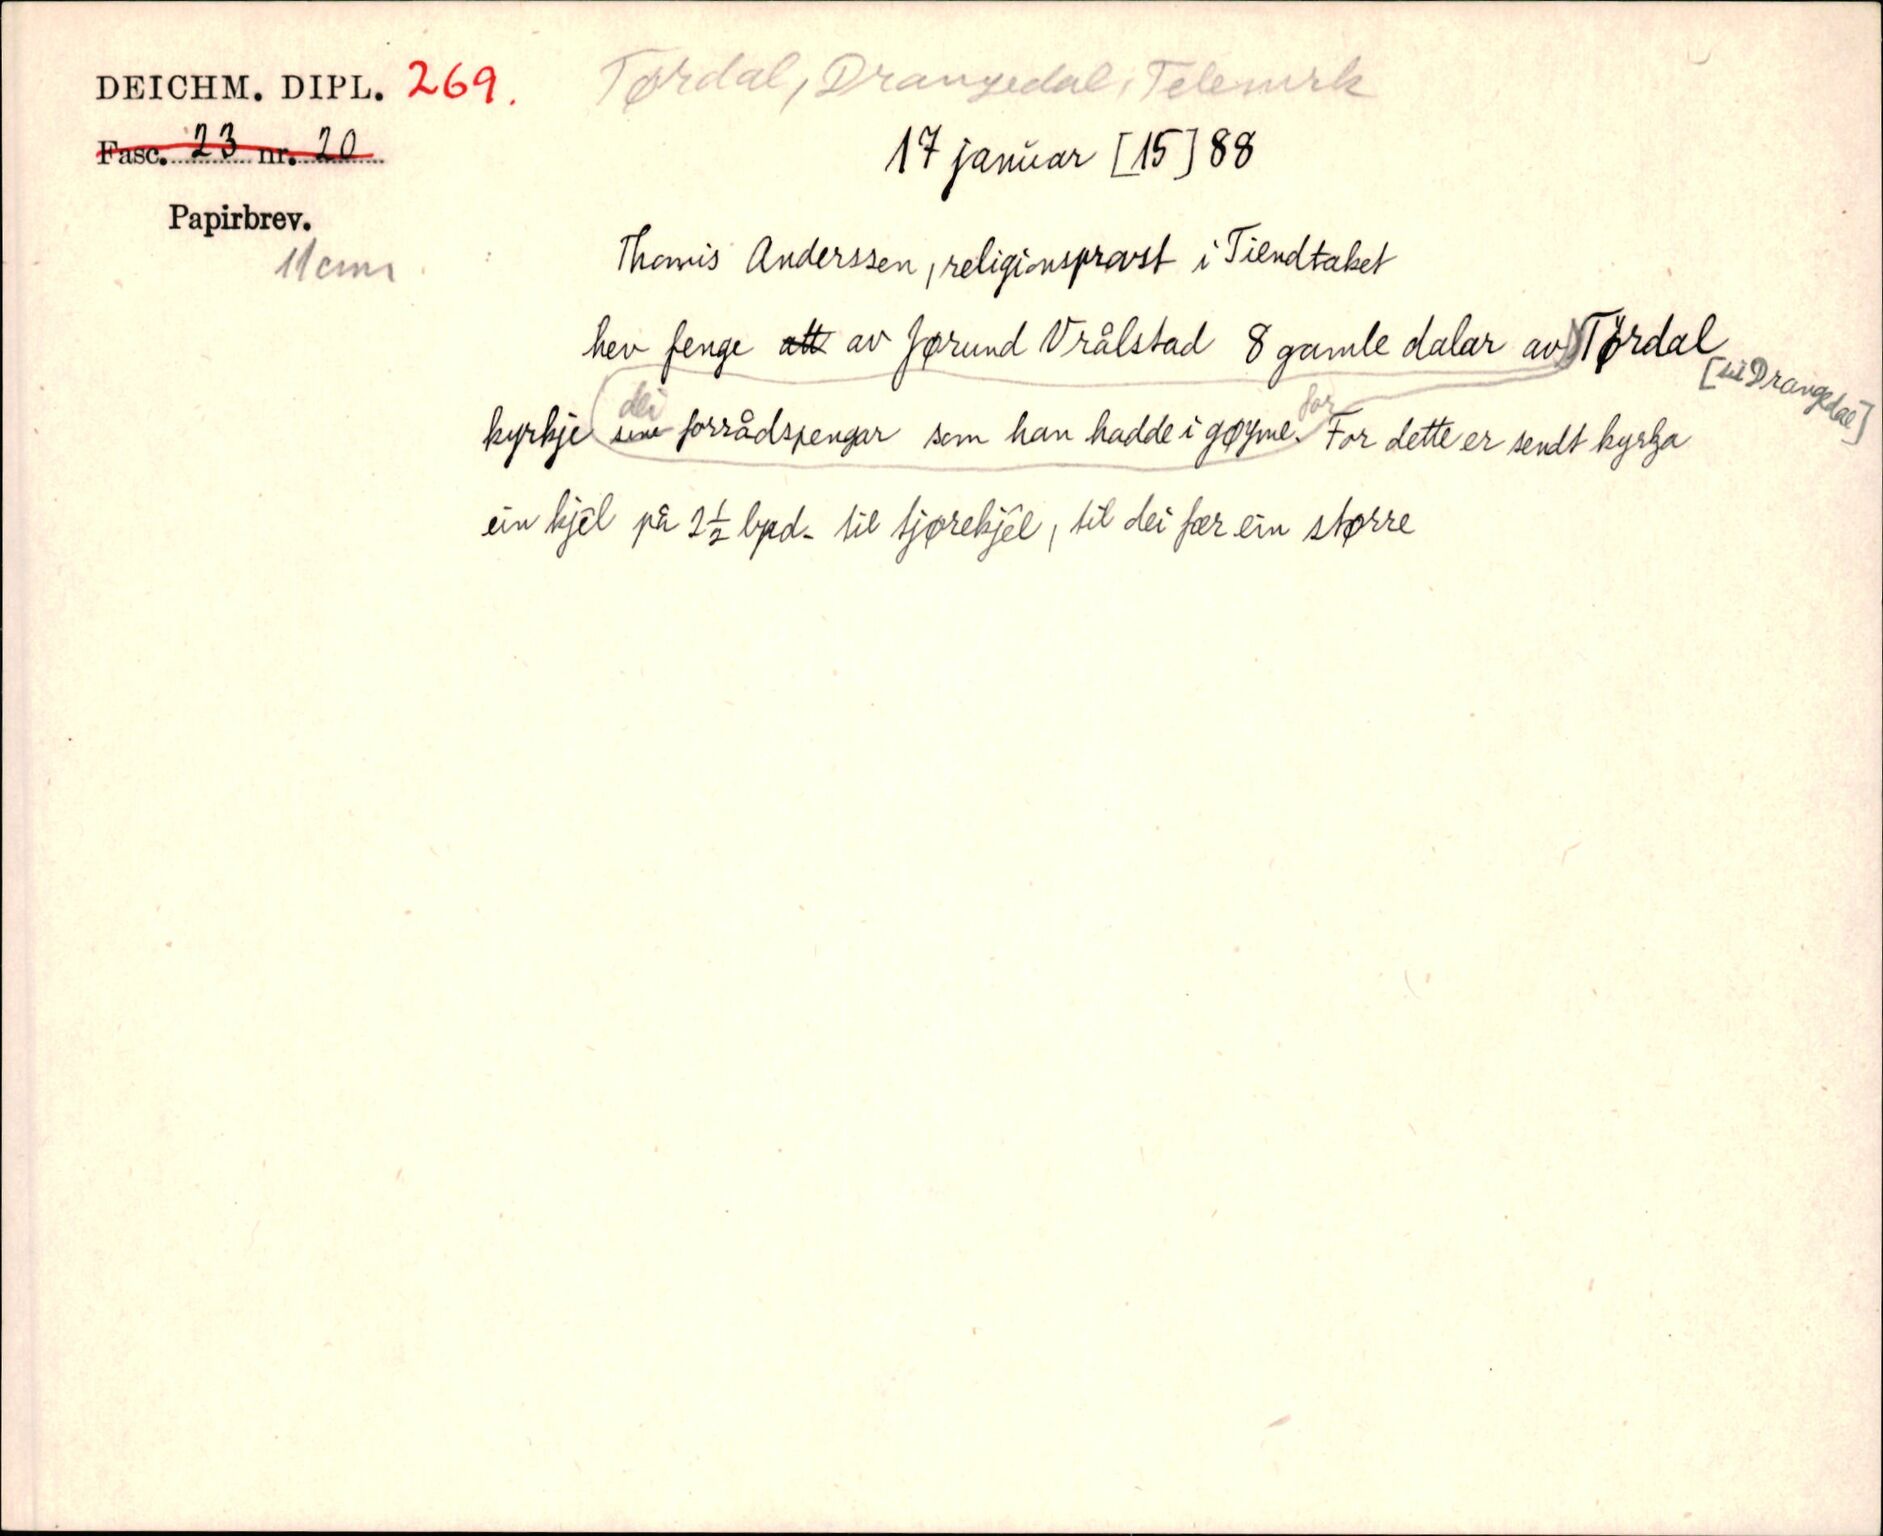 DEICHM. DIPL. 269.
Tørdal, Drangedal, Telemark
Fasc. 23 nr. 20
17 januar [15]88
Papirbrev.
11 cm
Thomis Anderssen, religionspravst i Tiendtaket
hev fenge att av Jørund Vrålstad 8 gamle dalar av Tørdal
[i Drangedal]
kyrkje sine dei forrådspengar som han hadde i gøyme. for For dette er sendt kyrkja
ein kjêl på 2½ bpd. til tjørekjêl, til dei fær ein større